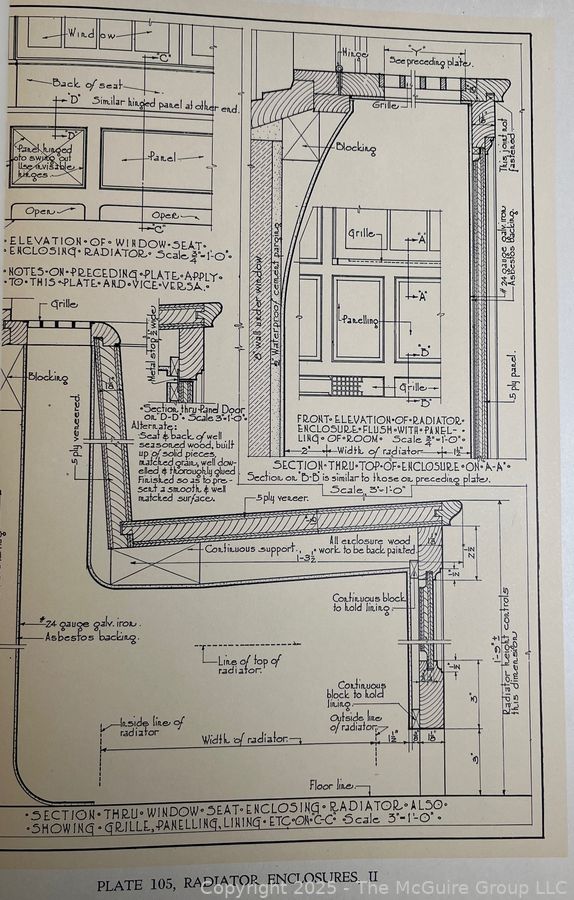 Window
"C"
Back of seat
"D"
Similar hinged panel at other end.
"D"
Panel hinged
to swing out
Use invisible
hinges.
Panel
Open
Open
"C"
ELEVATION OF WINDOW SEAT
ENCLOSING RADIATOR Scale 3/4"=1'-0"
NOTES ON PRECEDING PLATE APPLY
TO THIS PLATE AND VICE VERSA.
Hinge
"Y"
See preceding plate.
Grille
Blocking
This joint not
fastened
8" wall under window
1/2" Waterproof cement parging
Grille
"A"
"A"
Panelling
"B"
Grille
"B"
#24 gauge galv. iron
Asbestos backing.
5 ply panel.
FRONT ELEVATION OF RADIATOR
ENCLOSURE FLUSH WITH PANEL-
LING OF ROOM Scale 3/8"=1'-0"
2"
Width of radiator
1 1/2"
SECTION THRU TOP OF ENCLOSURE ON A-A
Section on "B-B" is similar to those on preceding plate.
Scale 3"=1'-0"
Grille
Blocking
5 ply veneered.
Metal stop 1/2" wide
Section thru Panel Door
on D-D Scale 3"=1'-0"
Alternate:
Seat & back of well
seasoned wood, built
up of solid pieces,
matched grain, well dow-
elled & thoroughly glued
Finished so as to pre-
sent a smooth & well
matched surface.
5 ply veneer.
All enclosure wood
work to be back painted
Continuous support.
1'-3 1/2"
2 1/2"
1 1/2"
Continuous block
to hold lining
#24 gauge galv. iron.
Asbestos backing.
Line of top of
radiator.
1'-5" ±
Radiator height controls
this dimension
1 1/2"
Continuous
block to hold
lining
3"
Inside line of
radiator
Outside line
of radiator
Width of radiator
1 1/2"
3"
Floor line
SECTION THRU WINDOW SEAT ENCLOSING RADIATOR ALSO
SHOWING GRILLE, PANELLING, LINING ETC. ON C-C Scale 3"=1'-0"
PLATE 105, RADIATOR ENCLOSURES II
Copyright 2025 - The McGuire Group LLC